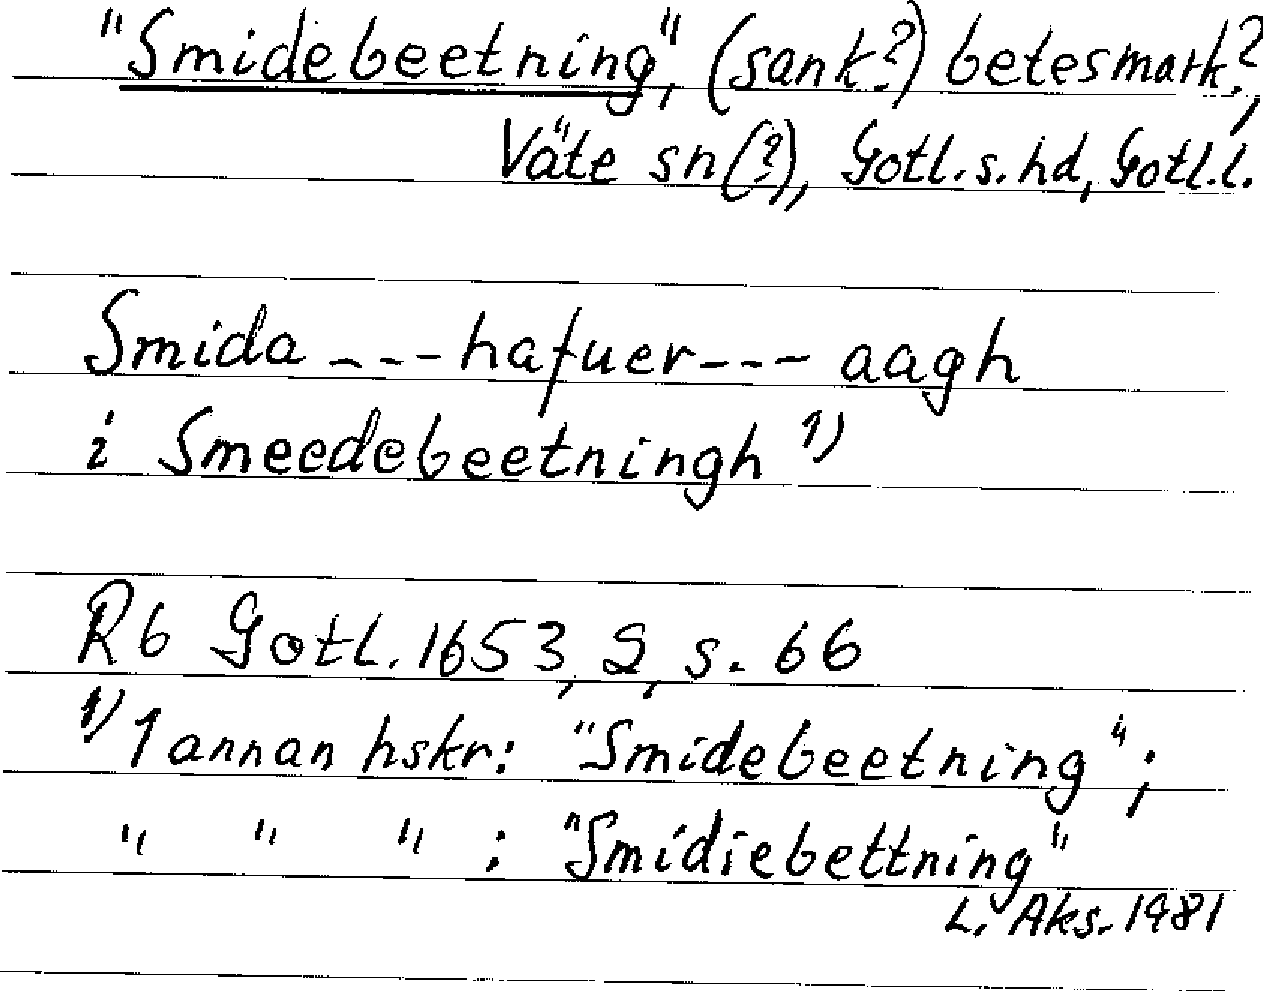 "Smidebeetning", (sank?) betesmark?,
Väte sn(?), Gotl. s. hd, Gotl. l.
Smida --- hafuer --- aagh
i Smeedebeetningh 1)
Rb Gotl. 1653, 2, s. 66
1) I annan hskr: "Smidebeetning";
" " " : "Smidiebettning"
L. Aks. 1981